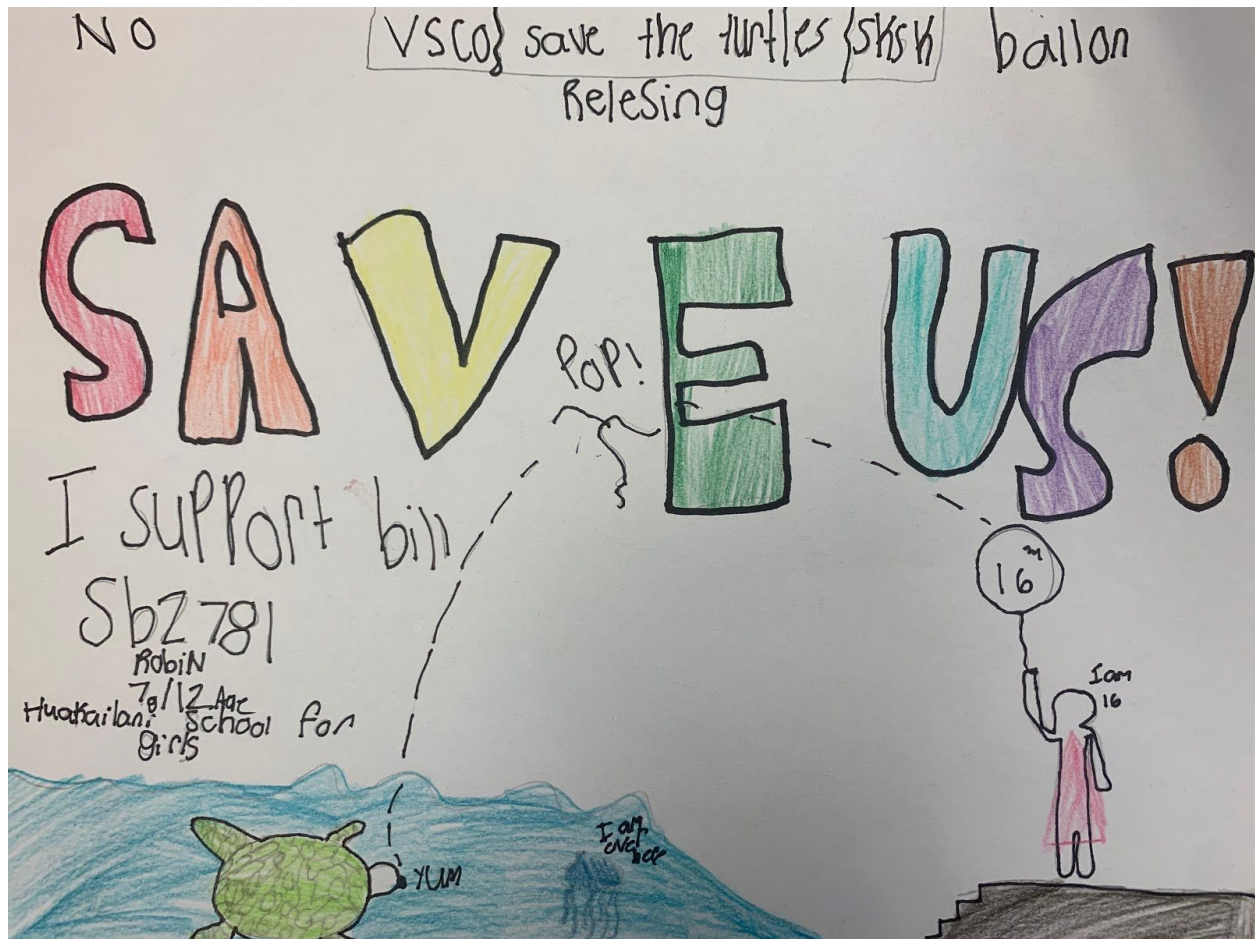 NO VSCO} save the turtles {SKSK ballon
Relesing
SAVE US!
POP!
I support bill
Sb2781
RobiN
7g/12 Age
Huakailani School for
girls
16
I am
16
I am
YUM